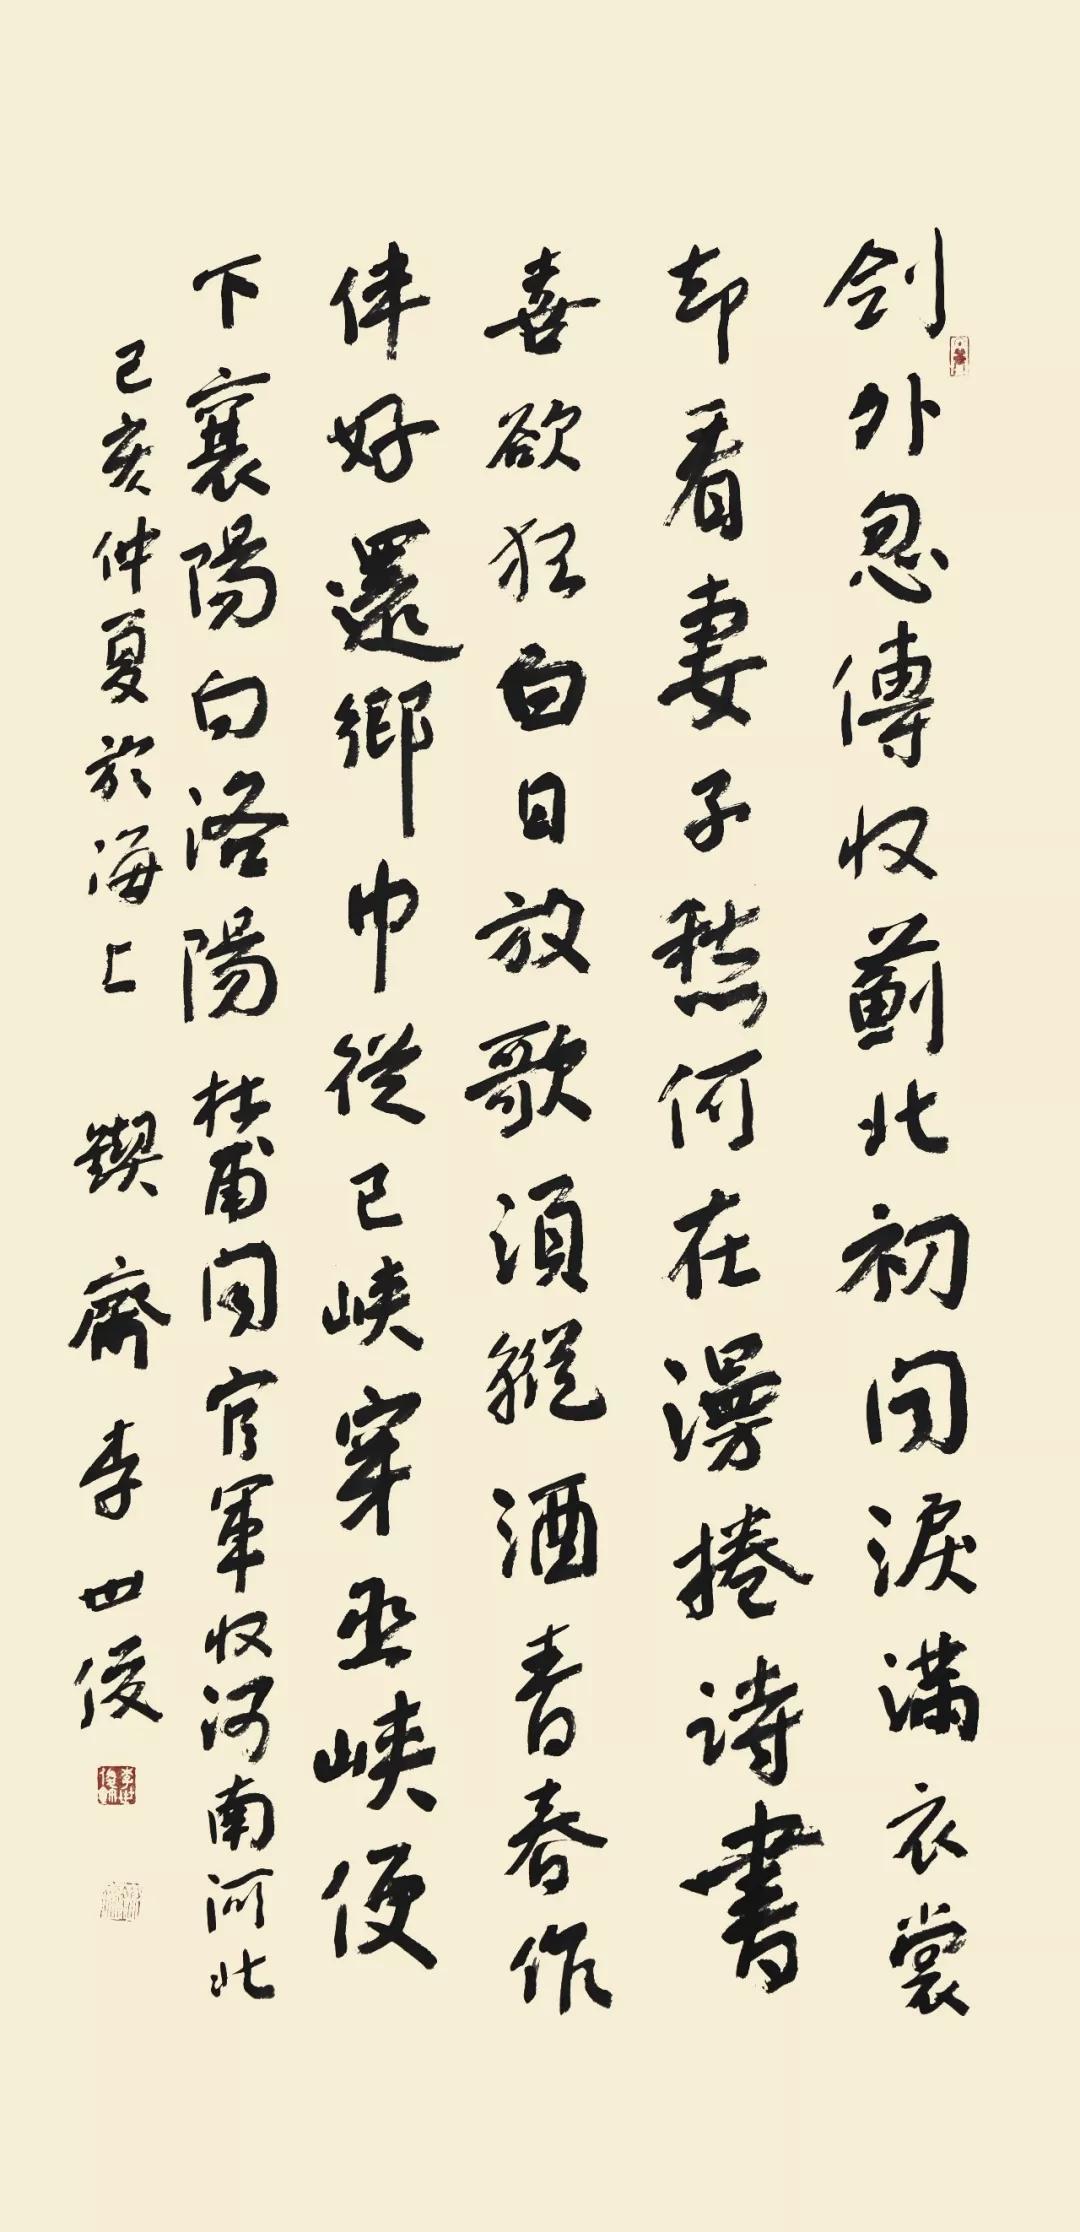 剑外忽傳收薊北初闻淚满衣裳
却看妻子愁何在漫捲诗書
喜欲狂白日放歌須縱酒青春作
伴好還鄉即從巴峡穿巫峡便
下襄陽向洛陽 杜甫闻官军收河南河北
己亥仲夏於海上 鍥齋 李世俊